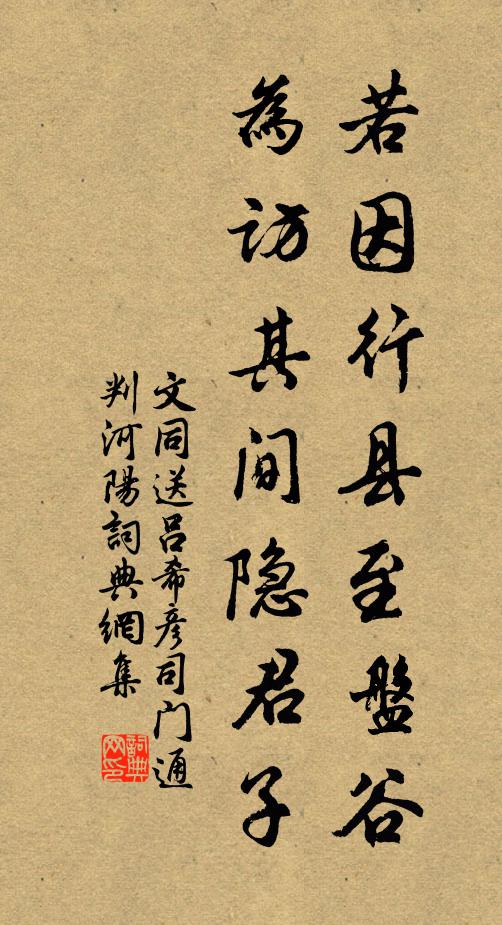 若因行县至盤谷
為訪其间隐君子
文同送吕希彦司门通
判河陽詞典網集
詞典网印